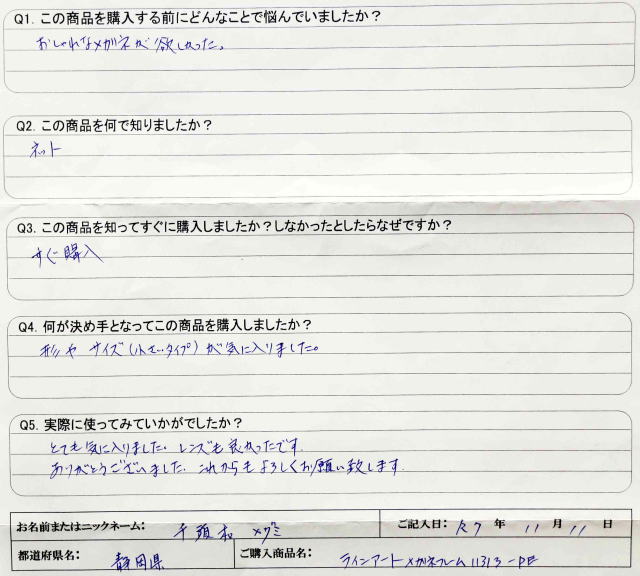 Q1. この商品を購入する前にどんなことで悩んでいましたか？
おしゃれなメガネが欲しかった。
Q2. この商品を何で知りましたか？
ネット
Q3. この商品を知ってすぐに購入しましたか？しなかったとしたらなぜですか？
すぐ購入
Q4. 何が決め手となってこの商品を購入しましたか？
形や サイズ(小さいタイプ)が気に入りました。
Q5. 実際に使ってみていかがでしたか？
とても気に入りました。レンズも良かったです。
ありがとうございました。これからもよろしくお願い致します。
お名前またはニックネーム： 千頭和 メグミ ご記入日： R7 年 11 月 11 日
都道府県名： 静岡県 ご購入商品名： ラインアートメガネフレーム 11313-PE